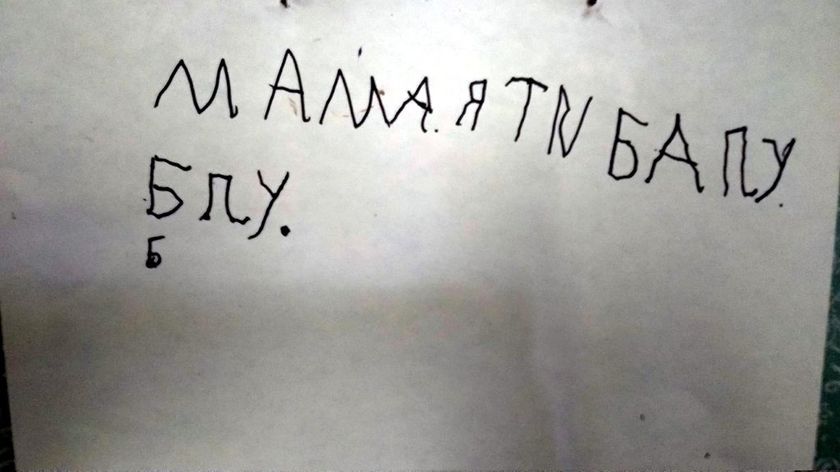 МАМА. Я ТИ БА ЛУ
БЛУ.
Б